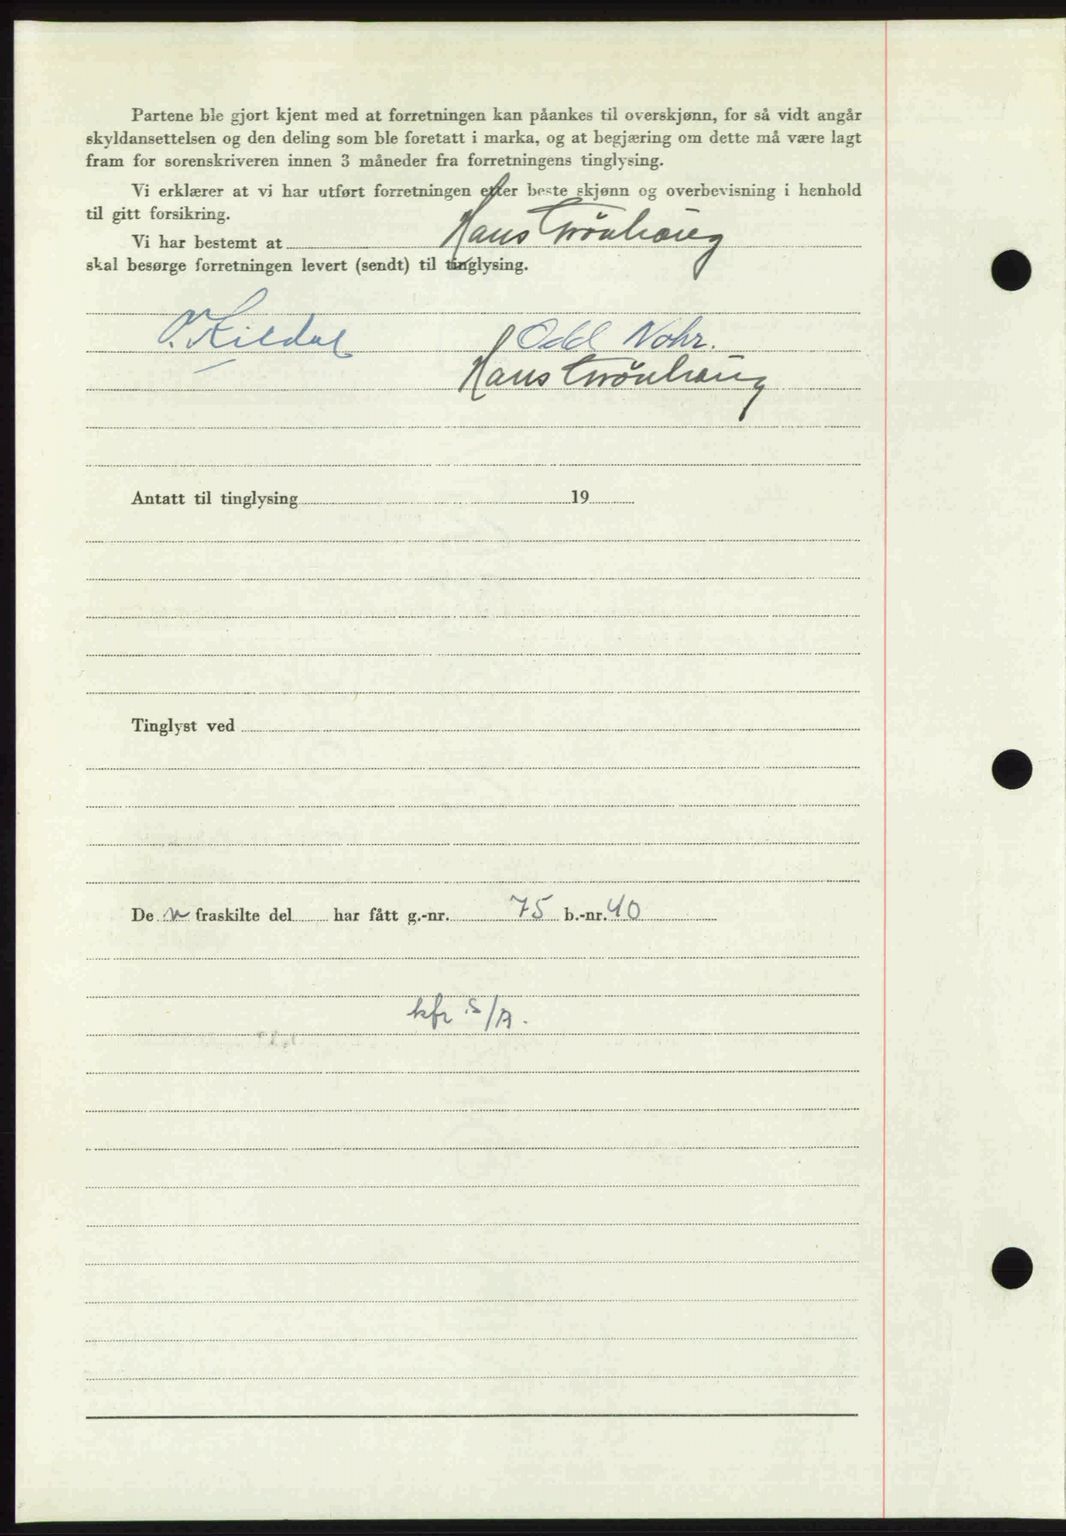 Partene ble gjort kjent med at forretningen kan påankes til overskjønn, for så vidt angår
skyldansettelsen og den deling som ble foretatt i marka, og at begjæring om dette må være lagt
fram for sorenskriveren innen 3 måneder fra forretningens tinglysing.
Vi erklærer at vi har utført forretningen etter beste skjønn og overbevisning i henhold
til gitt forsikring.
Vi har bestemt at Hans Grönhaug
skal besørge forretningen levert (sendt) til tinglysing.
O. Kildal Odd Nohr.
Hans Grönhaug
Antatt til tinglysing 19
Tinglyst ved
De n fraskilte del har fått g.-nr. 75 b.-nr. 40
kfr S/A.